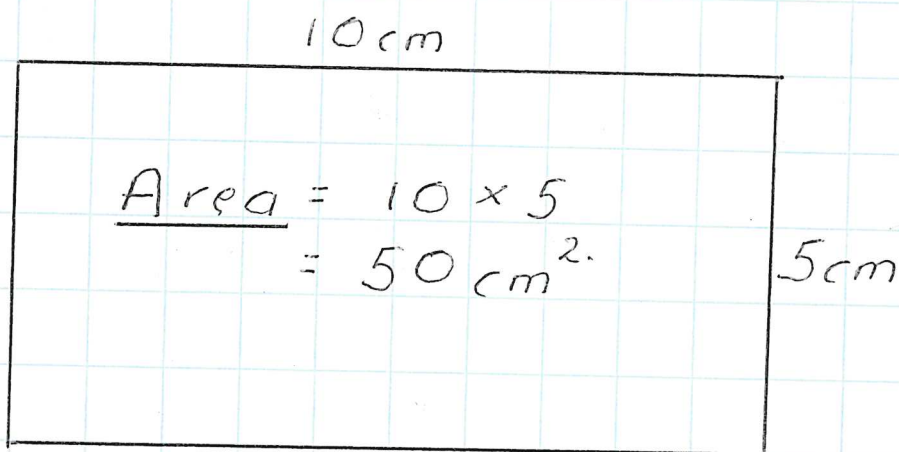 10cm
Area = 10 × 5
= 50 cm².
5cm